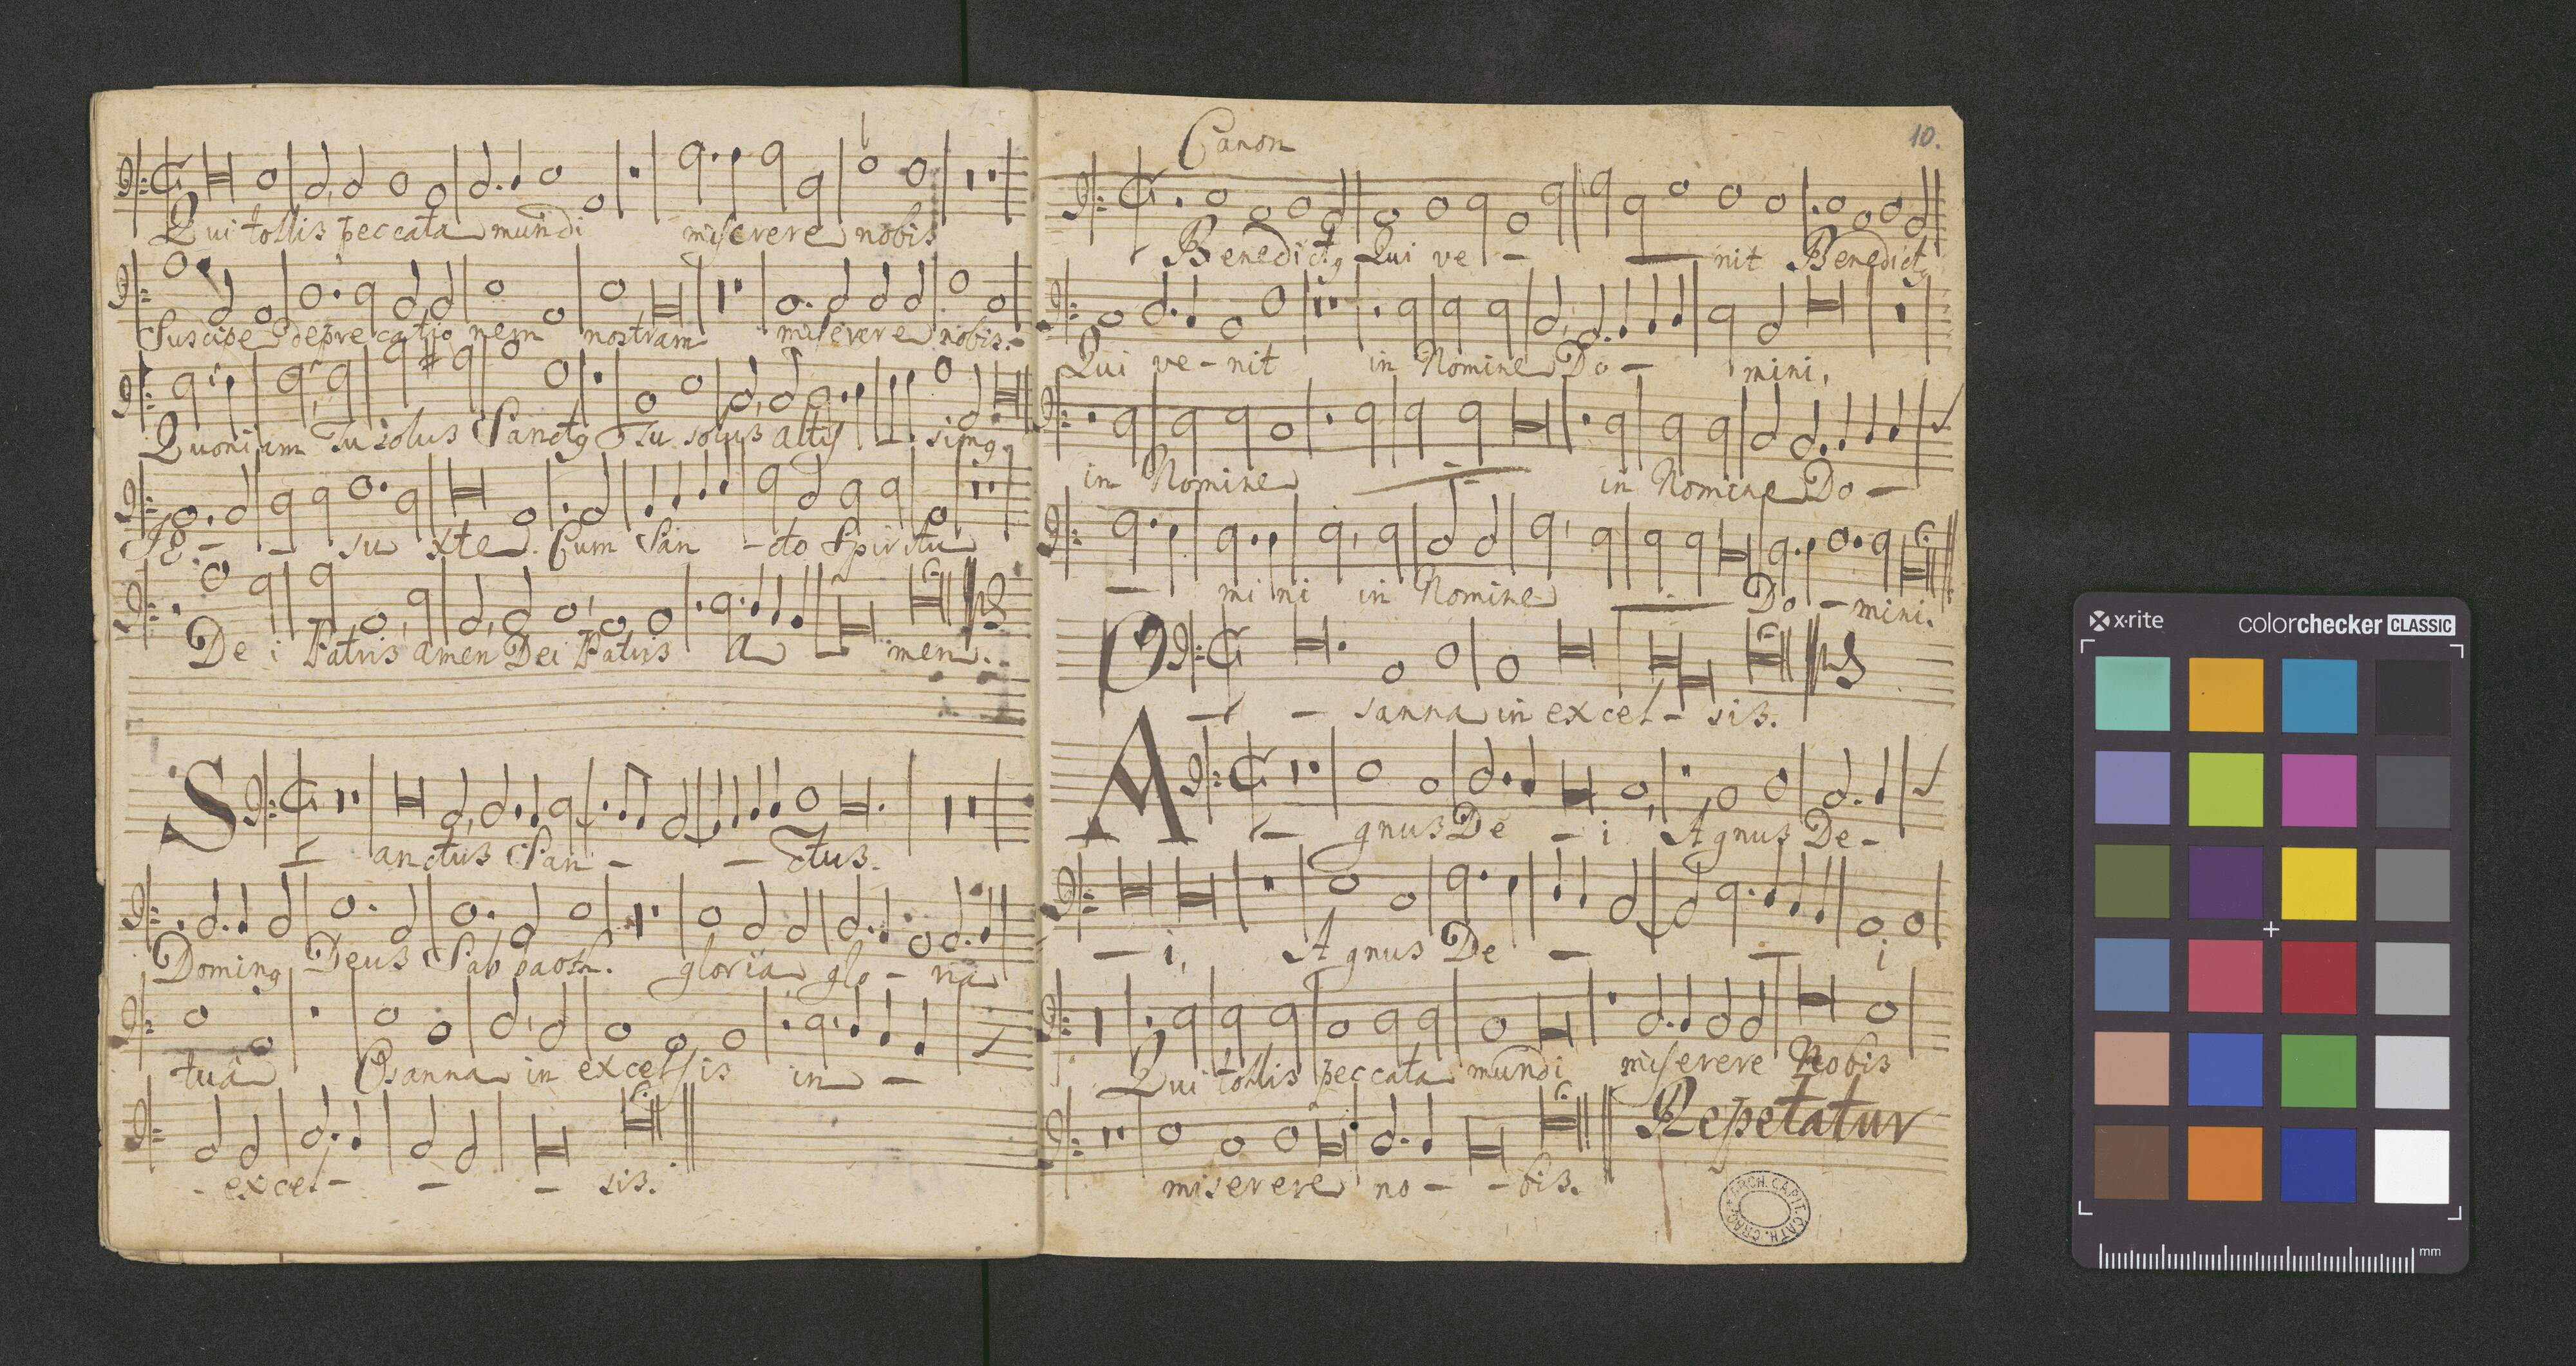 Qui tollis peccata mundi miserere nobis
Suscipe deprecationem nostram miserere nobis.
Quoniam Tu solus Sanctꝯ Tu solus altis - simꝯ
Je - - su xte. Cum San - cto Spiritu
De i Patris amen Dei Patris A - men.
S - anctus San - - ctus.
Dominꝯ Deus Sabbaoth. gloria glo - ria
tua Osanna in excelsis in -
- excel - - - sis.
Canon
10.
Benedictꝯ Qui ve - - nit Benedictꝯ
Qui ve - nit in Nomine Do - mini,
in Nomine in Nomine Do -
- mi ni in Nomine Do - mini.
O - - sanna in excel - sis.
A - gnus De - i A gnus De -
- i, A gnus De - - i
Qui tollis peccata mundi miserere Nobis
miserere no - - bis. Repetatur
ARCH. CAPIT. CATH. CRAC.
x-rite colorchecker CLASSIC
mm